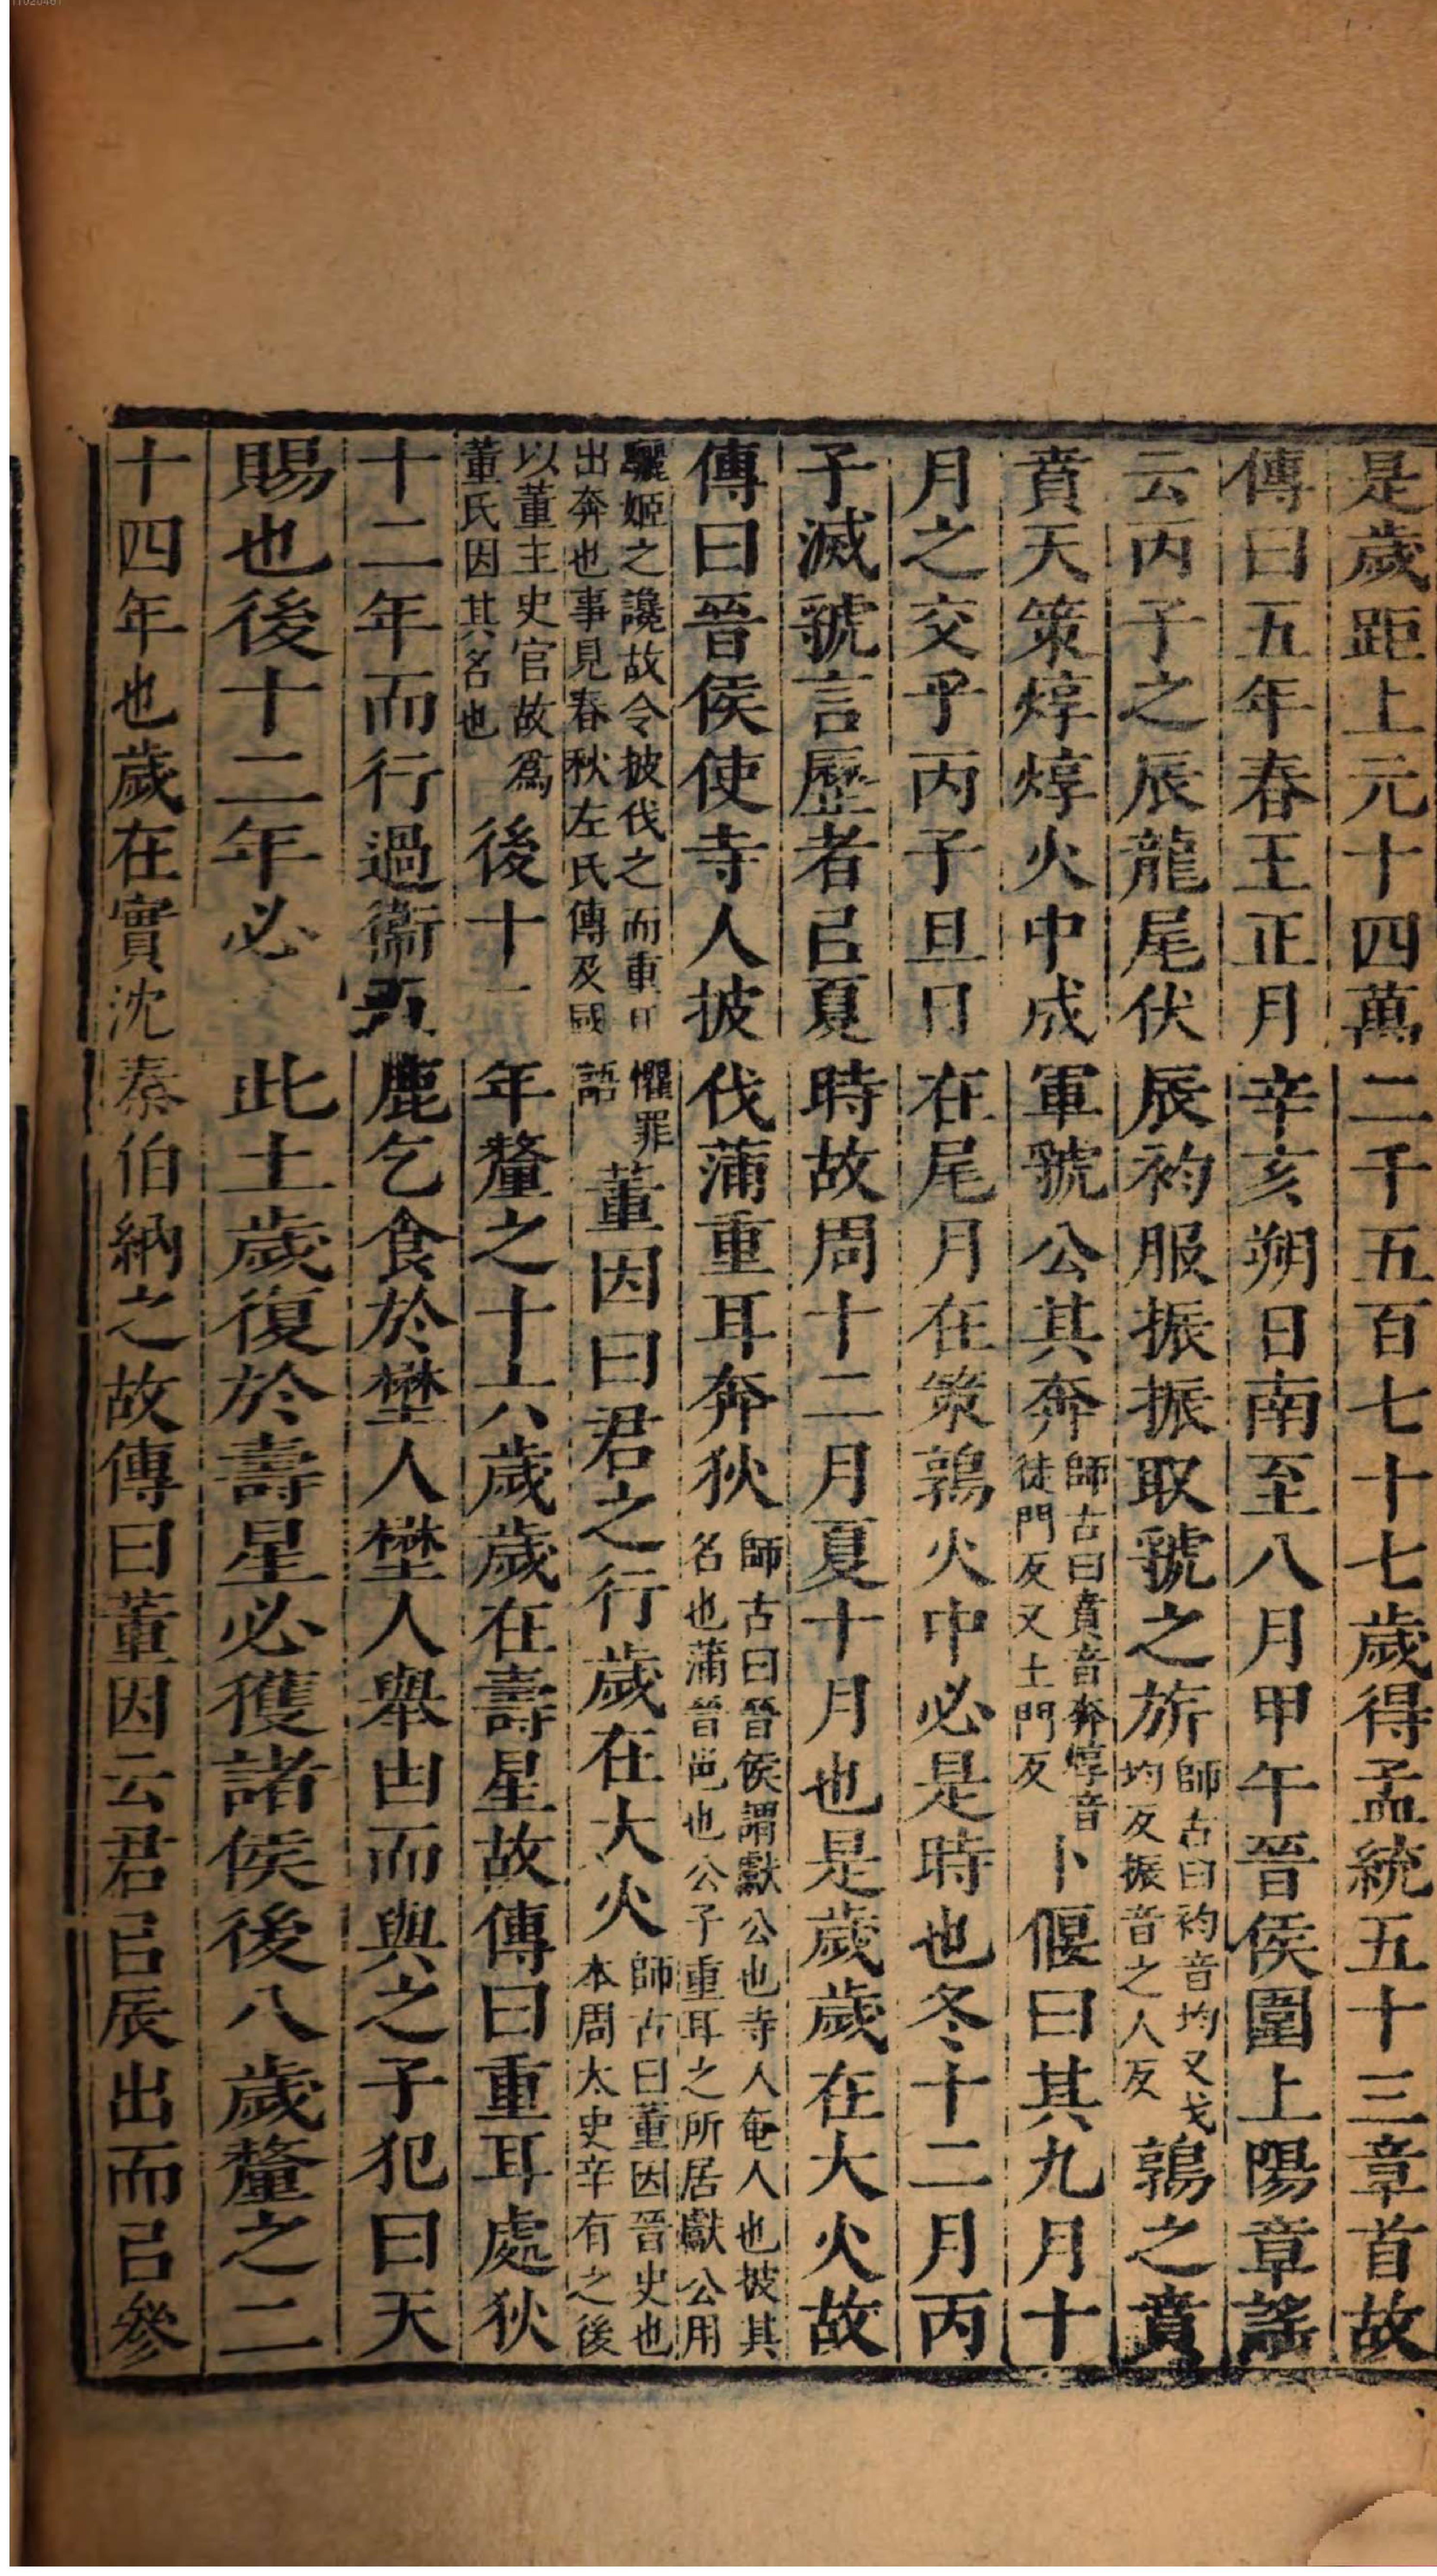 是歲距上元十四萬二千五百七十七歲得孟統五十三章首故
傳曰五年春王正月辛亥朔日南至八月甲午晉侯圍上陽章謠
云丙子之辰龍尾伏辰袀服振振取虢之旂師古曰袀音均又弋均反振音之人反鶉之賁
賁天策焞焞火中成軍虢公其奔師古曰賁音奔焞音徒門反又土門反卜偃曰其九月十
月之交乎丙子旦日在尾月在策鶉火中必是時也冬十二月丙
子滅虢言歷者㠯夏時故周十二月夏十月也是歲歲在大火故
傳曰晉侯使寺人披伐蒲重耳奔狄師古曰晉侯謂獻公也寺人奄人也披其名也蒲晉邑也公子重耳之所居獻公用
驪姬之讒故令披伐之而重耳懼罪出奔也事見春秋左氏傳及國語董因曰君之行歲在大火師古曰董因晉史也本周太史辛有之後
以董主史官故爲董氏因其名也後十一年釐之十六歲歲在壽星故傳曰重耳處狄
十二年而行過衞五鹿乞食於壄人壄人舉甴而與之子犯曰天
賜也後十二年必此土歲復於壽星必獲諸侯後八歲釐之二
十四年也歲在實沈秦伯納之故傳曰董因云君㠯辰出而㠯參